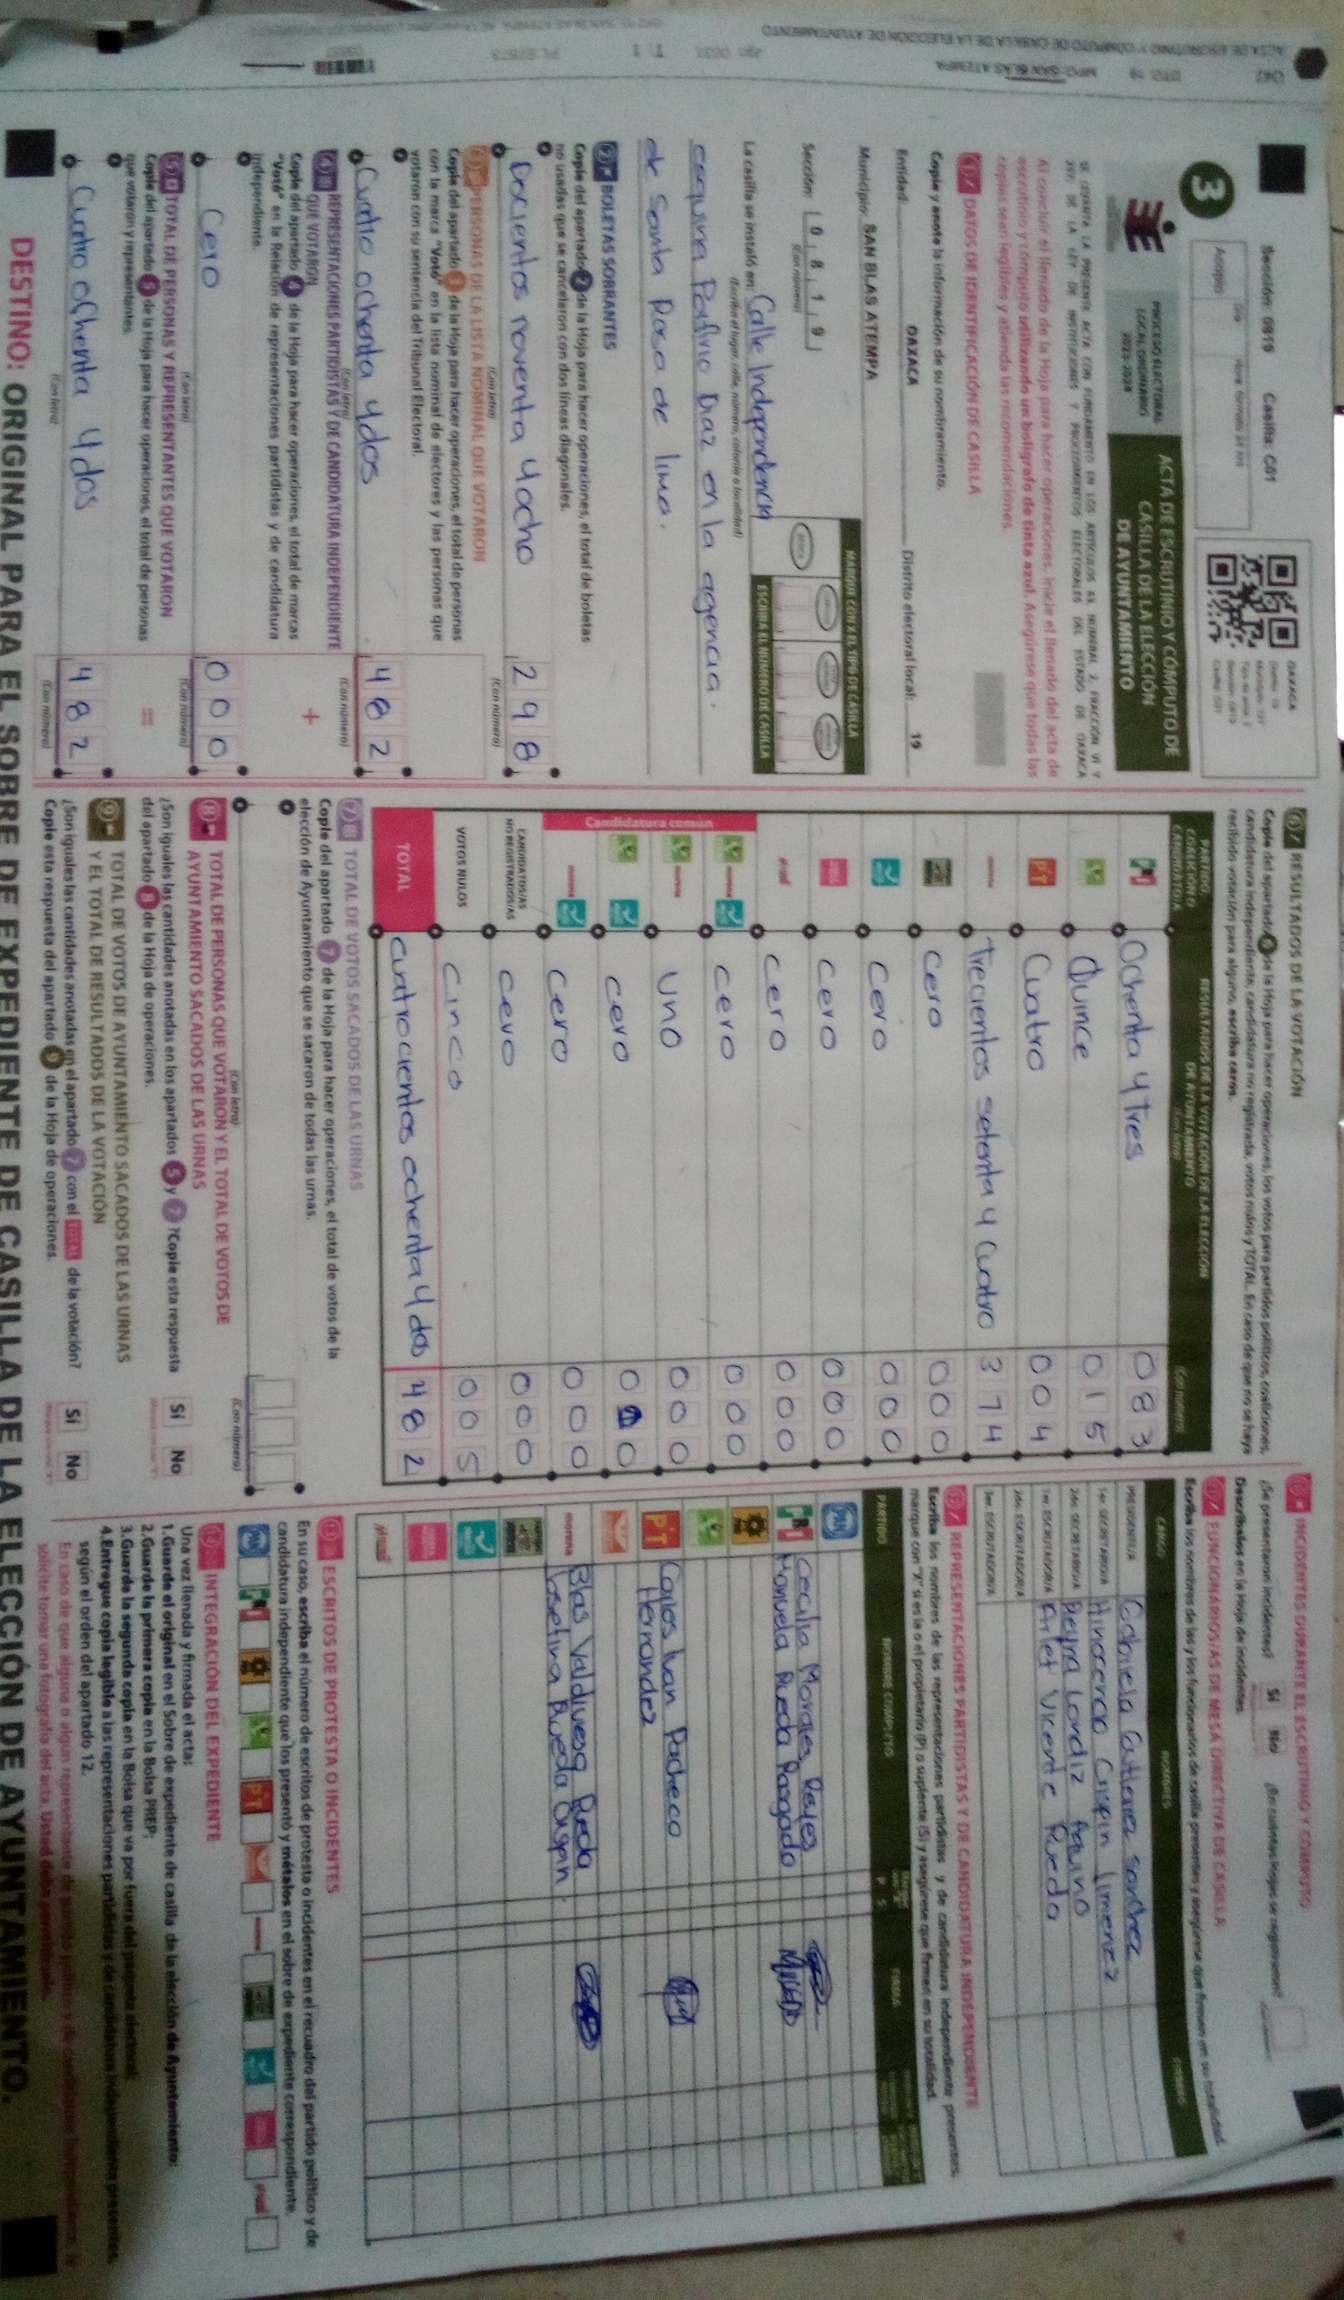 Sección: 0819 Casilla: C01
OAXACA
3
Acopio
PROCESO ELECTORAL
LOCAL ORDINARIO
2023-2024
ACTA DE ESCRUTINIO Y CÓMPUTO DE
CASILLA DE LA ELECCIÓN
DE AYUNTAMIENTO
SE LEVANTA LA PRESENTE ACTA CON FUNDAMENTO EN LOS ARTÍCULOS
LEY DE INSTITUCIONES Y PROCEDIMIENTOS ELECTORALES DEL ESTADO DE OAXACA
Al concluir el llenado de la Hoja para hacer operaciones, inicie el llenado del acta de
escrutinio y cómputo utilizando un bolígrafo de tinta azul. Asegúrese que todas las
copias sean legibles y atienda las recomendaciones.
1 DATOS DE IDENTIFICACIÓN DE CASILLA
Copie y anote la información de su nombramiento.
Entidad: OAXACA Distrito electoral local: 19
Municipio: SAN BLAS ATEMPA
Sección: 0 8 1 9
(Con número)
MARQUE CON X EL TIPO DE CASILLA
ESCRIBA EL NÚMERO DE CASILLA
La casilla se instaló en: Calle Independencia
(Escriba el lugar, calle, número, colonia o localidad)
esquina Porfirio Diaz en la agencia.
de Santa Rosa de lima.
2 BOLETAS SOBRANTES
Copie del apartado 2 de la Hoja para hacer operaciones, el total de boletas
no usadas que se cancelaron con dos líneas diagonales.
Docientos noventa y ocho 2 9 8
(Con letra) (Con número)
3 PERSONAS DE LA LISTA NOMINAL QUE VOTARON
Copie del apartado 3 de la Hoja para hacer operaciones, el total de personas
con la marca "Votó" en la lista nominal de electores y las personas que
votaron con su sentencia del Tribunal Electoral.
Cuatro ochenta y dos 4 8 2
(Con letra) (Con número)
4 REPRESENTACIONES PARTIDISTAS Y DE CANDIDATURA INDEPENDIENTE
QUE VOTARON
Copie del apartado 4 de la Hoja para hacer operaciones, el total de marcas
"Votó" en la Relación de representaciones partidistas y de candidatura
independiente.
+
Cero 0 0 0
(Con letra) (Con número)
5 TOTAL DE PERSONAS Y REPRESENTANTES QUE VOTARON
Copie del apartado 5 de la Hoja para hacer operaciones, el total de personas
que votaron y representantes.
=
Cuatro ochenta y dos 4 8 2
(Con letra) (Con número)
6 RESULTADOS DE LA VOTACIÓN
Copie del apartado 6 de la Hoja para hacer operaciones, los votos para partidos políticos, coaliciones,
candidatura independiente, candidatura no registrada, votos nulos y TOTAL. En caso de que no se haya
recibido votación para alguno, escriba ceros.
PARTIDO,
COALICIÓN O
CANDIDATURA
RESULTADOS DE LA VOTACIÓN DE LA ELECCIÓN
DE AYUNTAMIENTO
(Con letra)
(Con número)
PRI Ochenta y tres 0 8 3
Quince 0 1 5
PT Cuatro 0 0 4
Trecientos setenta y cuatro 3 7 4
cero 0 0 0
Cero 0 0 0
cero 0 0 0
cero 0 0 0
Candidatura común
cero 0 0 0
uno 0 0 0
cero 0 0
cero 0 0 0
CANDIDATOS/AS
NO REGISTRADOS/AS
cero 0 0 0
VOTOS NULOS cinco 0 0 5
TOTAL cuatrocientos ochenta y dos 4 8 2
7 TOTAL DE VOTOS SACADOS DE LAS URNAS
Copie del apartado 7 de la Hoja para hacer operaciones, el total de votos de la
elección de Ayuntamiento que se sacaron de todas las urnas.
(Con letra) (Con número)
8 TOTAL DE PERSONAS QUE VOTARON Y EL TOTAL DE VOTOS DE
AYUNTAMIENTO SACADOS DE LAS URNAS
¿Son iguales las cantidades anotadas en los apartados 5 y 7 ?Copie esta respuesta
del apartado 8 de la Hoja de operaciones.
Sí No
9 TOTAL DE VOTOS DE AYUNTAMIENTO SACADOS DE LAS URNAS
Y EL TOTAL DE RESULTADOS DE LA VOTACIÓN
¿Son iguales las cantidades anotadas en el apartado 7 con el TOTAL de la votación?
Copie esta respuesta del apartado 9 de la Hoja de operaciones.
Sí No
INCIDENTES DURANTE EL ESCRUTINIO Y CÓMPUTO
¿Se presentaron incidentes? Sí No
Descríbalos en la Hoja de incidentes.
FUNCIONARIOS/AS DE MESA DIRECTIVA DE CASILLA
Escriba los nombres de las y los funcionarios de casilla presentes y asegúrese que firmen en su totalidad.
CARGO NOMBRES FIRMAS
PRESIDENTE/A Gabriela Gutierrez Sanchez
1er. SECRETARIO/A Hinocencio Crispin Jimenez
2do. SECRETARIO/A Reyna Lordiz Aquino
1er. ESCRUTADOR/A Arlet Vicente Rueda
2do. ESCRUTADOR/A
3er. ESCRUTADOR/A
12 REPRESENTACIONES PARTIDISTAS Y DE CANDIDATURA INDEPENDIENTE
Escriba los nombres de las representaciones partidistas y de candidatura independiente presentes,
marque con "X" si es la o el propietario (P) o suplente (S) y asegúrese que firmen en su totalidad.
PARTIDO NOMBRE COMPLETO P S FIRMA
PAN
PRI Cecilia Morales Reyes
Manuela Rueda Rasgado
PT Carlos Ivan Pacheco
Hernandez
morena Blas Valdivieso Rueda
Josefina Rueda Crispin
ESCRITOS DE PROTESTA O INCIDENTES
En su caso, escriba el número de escritos de protesta o incidentes en el recuadro del partido político y de
candidatura independiente que los presentó y métalos en el sobre de expediente correspondiente.
PAN PRI PT
INTEGRACIÓN DEL EXPEDIENTE
Una vez llenada y firmada el acta:
1.Guarde el original en el Sobre de expediente de casilla de la elección de Ayuntamiento;
2.Guarde la primera copia en la Bolsa PREP;
3.Guarde la segunda copia en la Bolsa que va por fuera del paquete electoral;
4.Entregue copia legible a las representaciones partidistas y de candidatura independiente presentes,
según el orden del apartado 12.
En caso de que alguna o algún representante de partido político y de candidatura independiente le
solicite tomar una fotografía del acta, Usted debe permitírselo.
DESTINO: ORIGINAL PARA EL SOBRE DE EXPEDIENTE DE CASILLA DE LA ELECCIÓN DE AYUNTAMIENTO.